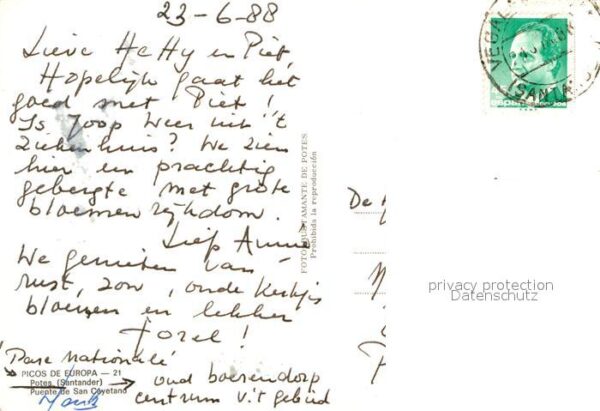 23-6-88
Lieve Hetty en Piet,
Hopelijk gaat het
goed met Piet!
Is Joop weer uit 't
ziekenhuis? We zien
hier een prachtig
gebergte met grote
bloemen rijkdom.
Liefs Annie
We genieten van
rust, zon, oude kerkjes
bloemen en lekker
Jozef!
'Parc Nationale'
PICOS DE EUROPA — 21
Potes (Santander)
Puente de San Cayetano
oud boerendorp
centrum v.'t gebied
FOTO BUSTAMANTE DE POTES
Prohibida la reproducción
De
privacy protection
Datenschutz